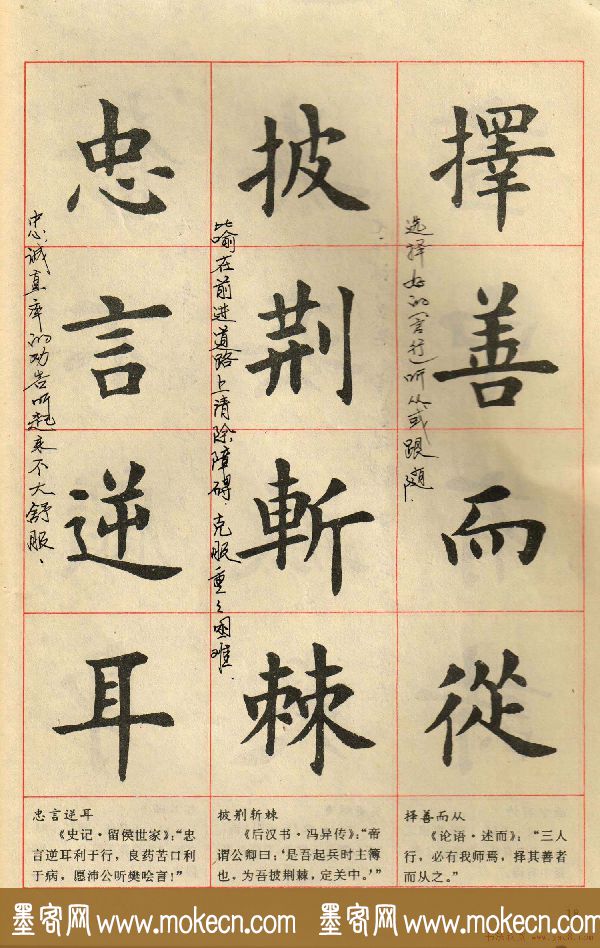 擇善而從
披荆斬棘
忠言逆耳
选择好的言行听从或跟随.
比喻在前进道路上清除障碍.克服重重困难.
忠诚真率的劝告听起来不大舒服.
择善而从
《论语·述而》：“三人
行，必有我师焉，择其善者
而从之。”
披荆斩棘
《后汉书·冯异传》：“帝
谓公卿曰：‘是吾起兵时主簿
也，为吾披荆棘，定关中。’”
忠言逆耳
《史记·留侯世家》：“忠
言逆耳利于行，良药苦口利
于病，愿沛公听樊哙言！”
墨客网 www.mokecn.com 墨客网 www.mokecn.com